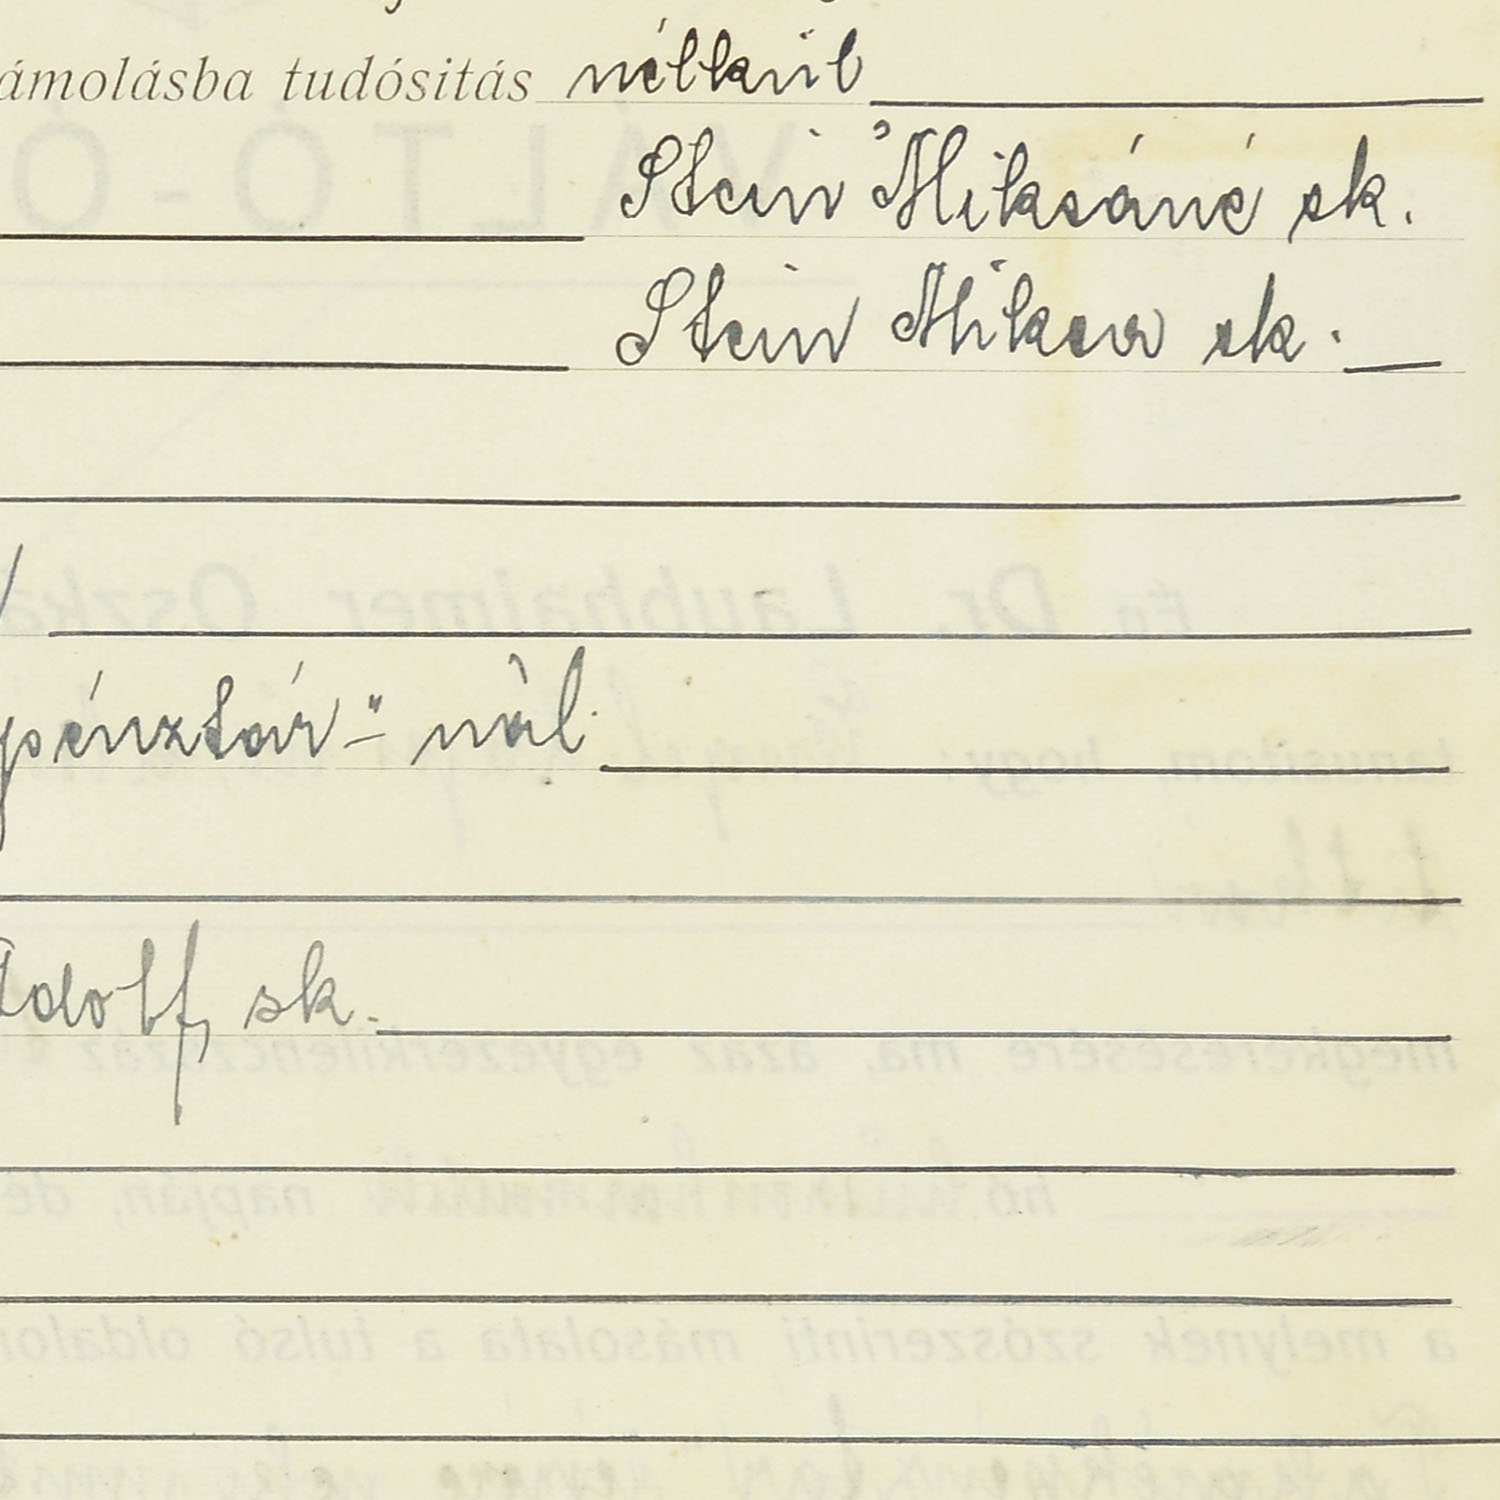 ámolásba tudósitás nélkül
Stein Miksáné sk.
Stein Miksa sk.
pénztár"- nál
Adolf, sk.